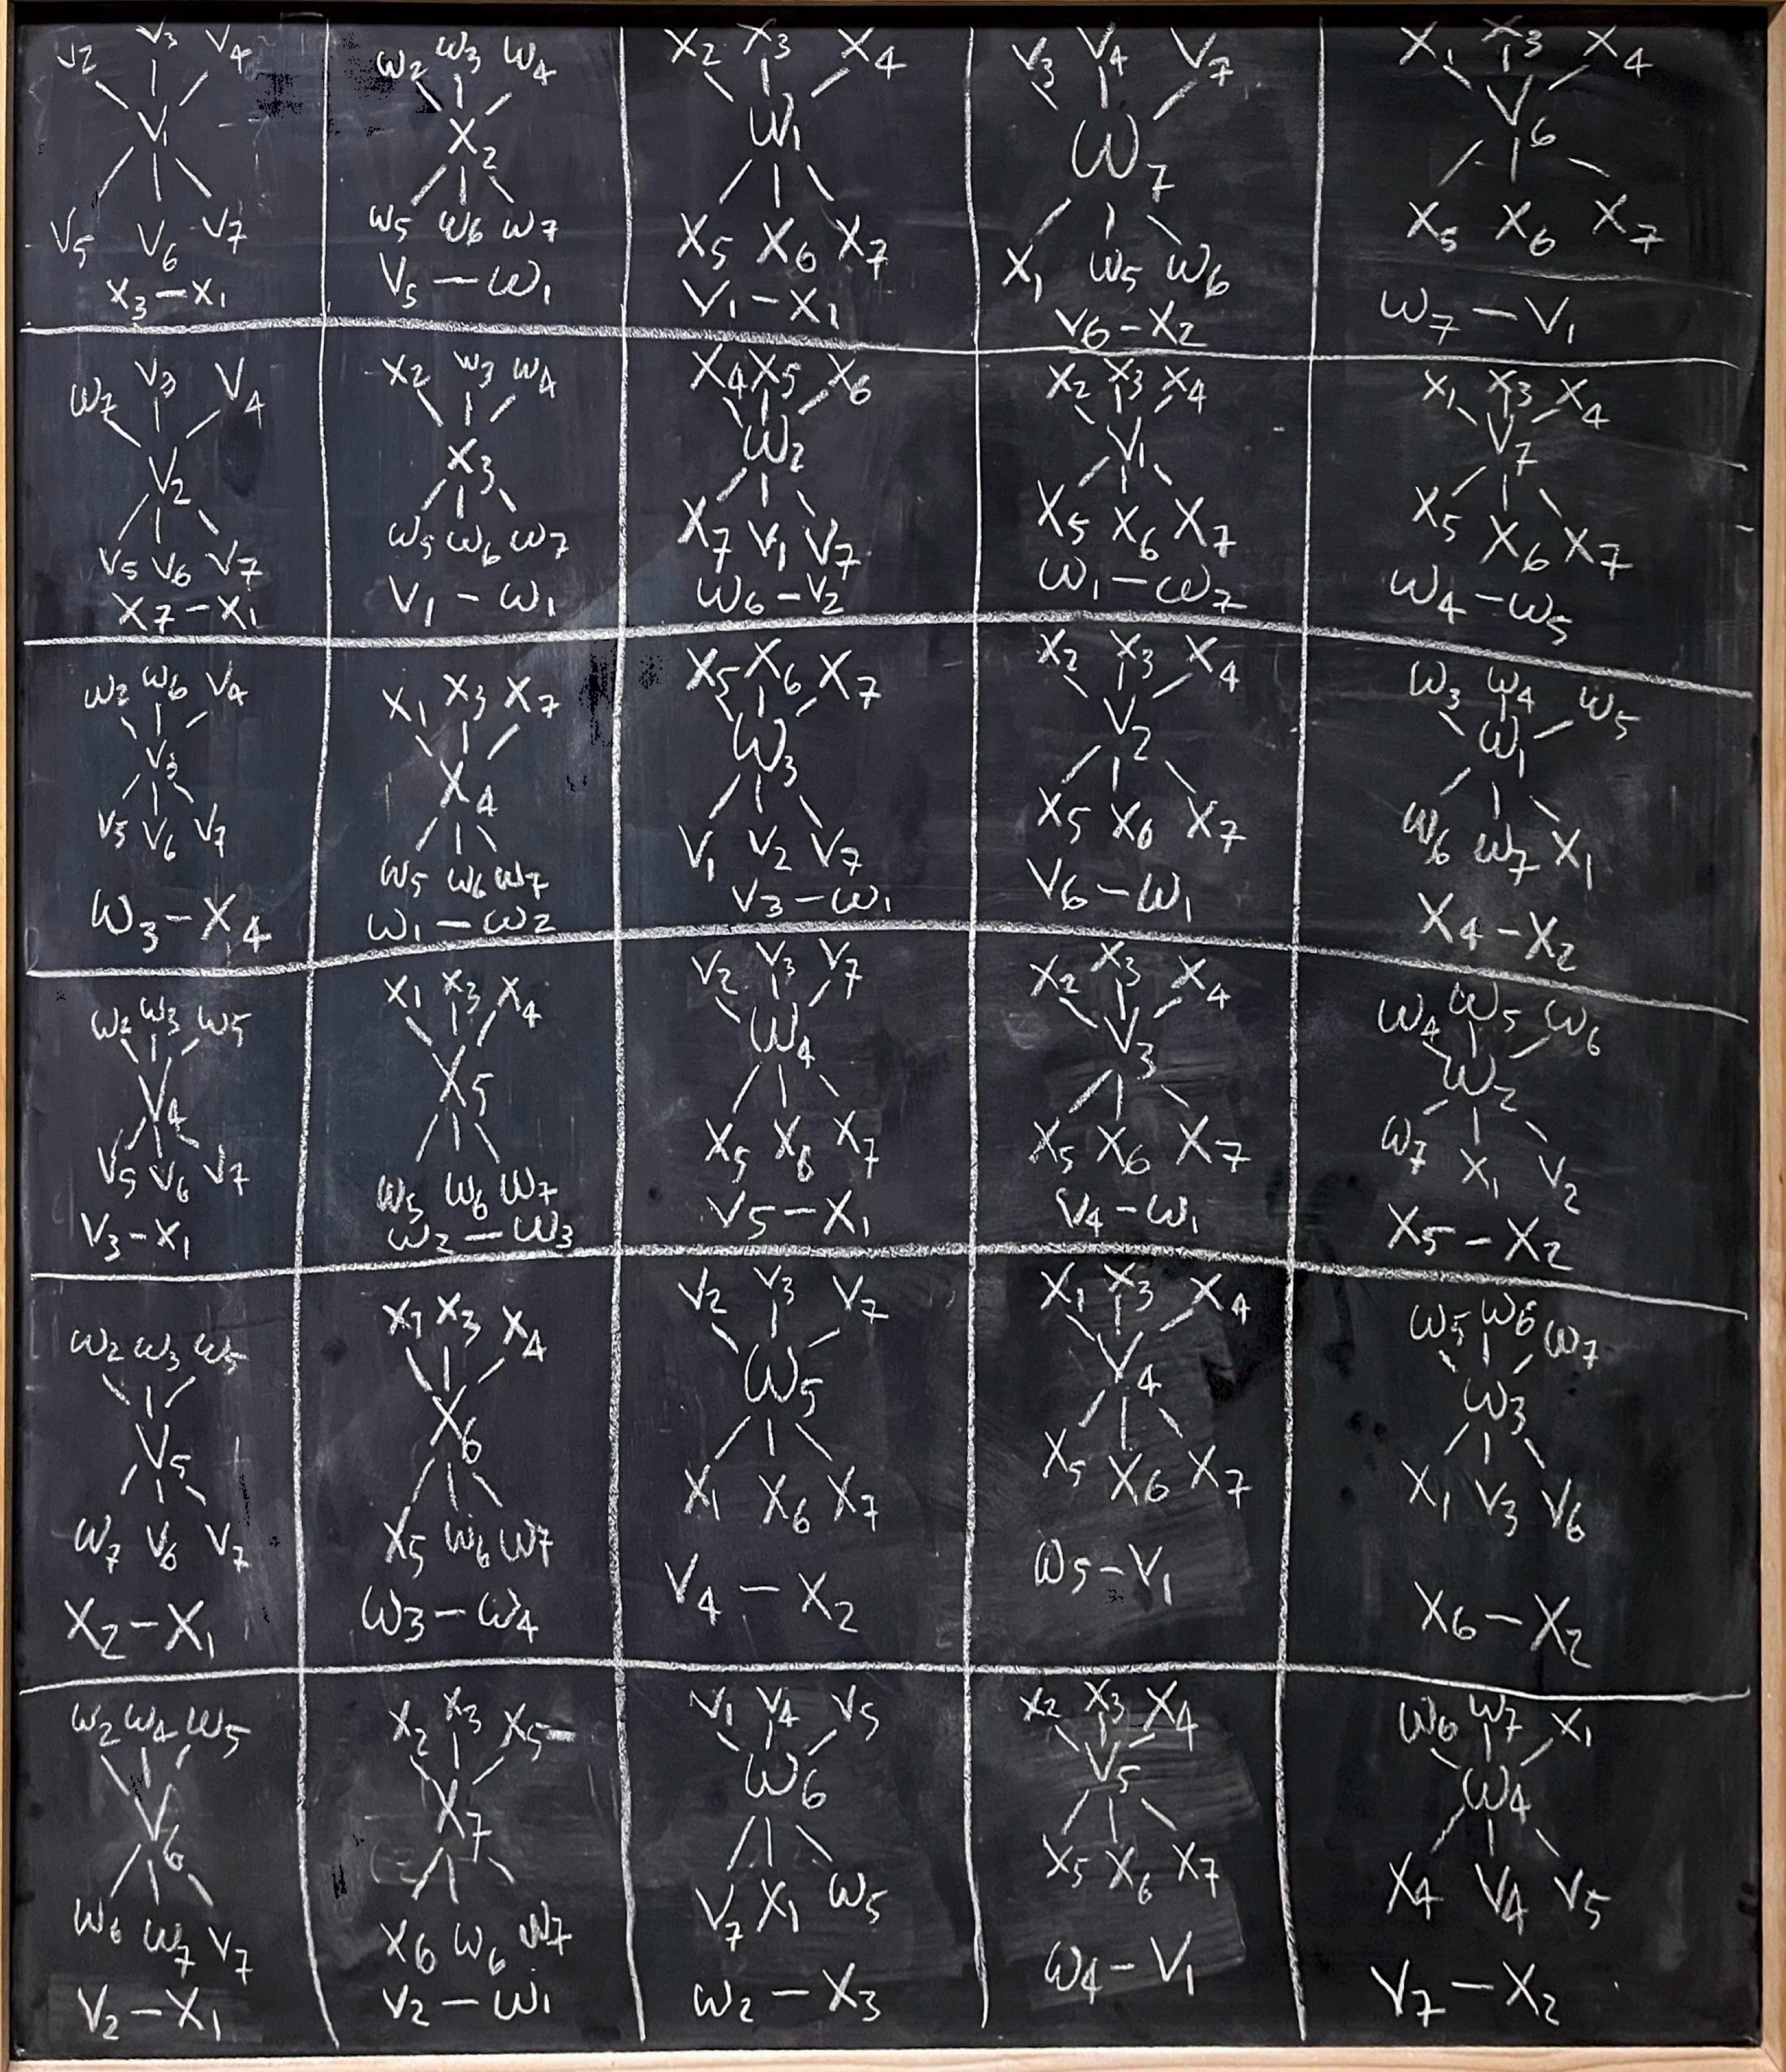 V2 V3 V4
V1
V5 V6 V7
X3 — X1
W2 W3 W4
X2
W5 W6 W7
V5 — W1
X2 X3 X4
W1
X5 X6 X7
V1 — X1
V3 V4 V7
W7
X1 W5 W6
V6 — X2
X1 X3 X4
V6
X5 X6 X7
W7 — V1
W7 V3 V4
V2
V5 V6 V7
X7 — X1
X2 W3 W4
X3
W5 W6 W7
V1 — W1
X4 X5 X6
W2
X7 V1 V7
W6 — V2
X2 X3 X4
V1
X5 X6 X7
W1 — W7
X1 X3 X4
V7
X5 X6 X7
W4 — W5
W2 W6 V4
V3
V5 V6 V7
W3 — X4
X1 X3 X7
X4
W5 W6 W7
W1 — W2
X5 X6 X7
W3
V1 V2 V7
V3 — W1
X2 X3 X4
V2
X5 X6 X7
V6 — W1
W3 W4 W5
W1
W6 W7 X1
X4 — X2
W2 W3 W5
V4
V5 V6 V7
V3 — X1
X1 X3 X4
X5
W5 W6 W7
W2 — W3
V2 V3 V7
W4
X5 X6 X7
V5 — X1
X2 X3 X4
V3
X5 X6 X7
V4 — W1
W4 W5 W6
W2
W7 X1 V2
X5 — X2
W2 W3 W5
V5
W7 V6 V7
X2 — X1
X1 X3 X4
X6
X5 W6 W7
W3 — W4
V2 V3 V7
W5
X1 X6 X7
V4 — X2
X1 X3 X4
V4
X5 X6 X7
W5 — V1
W5 W6 W7
W3
X1 V3 V6
X6 — X2
W2 W4 W5
V6
W6 W7 V7
V2 — X1
X2 X3 X5
X7
X6 W6 W7
V2 — W1
V1 V4 V5
W6
V7 X1 W5
W2 — X3
X2 X3 X4
V5
X5 X6 X7
W4 — V1
W6 W7 X1
W4
X4 V4 V5
V7 — X2